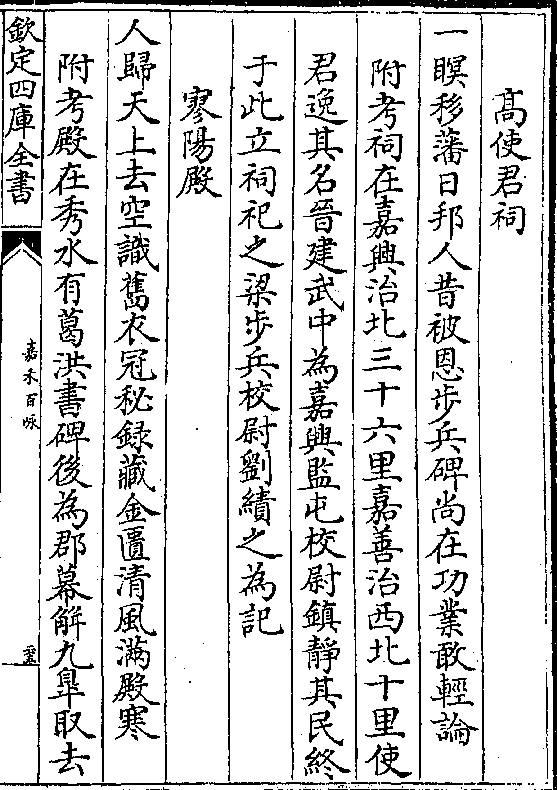 髙使君祠
一瞑移藩日邦人昔被恩歩兵碑尚在功業敢輕論
附考祠在嘉興治北三十六里嘉善治西北十里使
君逸其名晉建武中為嘉興監屯校尉鎮靜其民終
于此立祠祀之梁歩兵校尉劉績之為記
寥陽殿
人歸天上去空識舊衣冠秘録藏金匱清風滿殿寒
附考殿在秀水有葛洪書碑後為郡幕解九臯取去
欽定四庫全書
嘉禾百咏